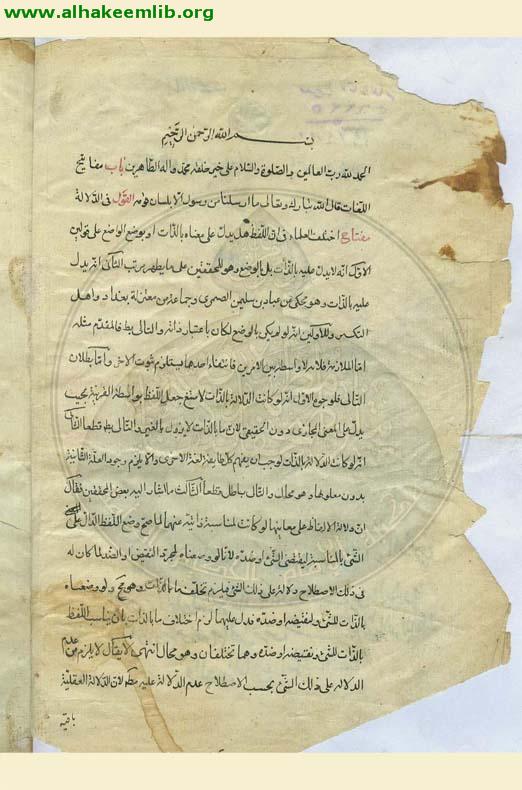 www.alhakeemlib.org
بسم الله الرحمن الرحيم
الحمد لله رب العالمين والصلوة والسلام على خير خلقه محمد واله الطاهرين باب مفاتيح
اللغات قال الله تبارك وتعالى وما ارسلنا من رسول الا بلسان قومه القول في الدلالة
مفتاح اختلف العلماء في ان اللفظ هل يدل على معناه بالذات او بوضع الواضع على قولين
الاول انه لا يدل عليه بالذات بل بالوضع وهو للمحققين على ما يظهر من الثاني انه يدل
عليه بالذات وهو محكي عن عباد بن سليمن الصمري وجماعة من معتزلة بغداد واهل
التكسير وللاولين انه لو لم يكن بالوضع لكان باعتبار ذاته والتالي بط فالمقدم مثله
اما الملازمة فلانه لا واسطة بين الامرين فانتفاء احدهما يستلزم ثبوت الاخر واما بطلان
التالي فلوجوه الاول انه لو كانت الدلالة بالذات لامتنع جعل اللفظ بواسطة القرينة بحيث
يدل على المعنى المجازي دون الحقيقي لان ما بالذات لا يزول بالغير والتالي بط قطعا الثاني
انه لو كانت الدلالة بالذات لوجب ان يفهم كل طايفة لغة الاخرى والا يلزم وجود العلة التامة
بدون معلولها وهو محال والتالي باطل قطعا الثالث ما اشار اليه بعض المحققين فقال
ان دلالة الالفاظ على معانيها لو كانت لمناسبة ذاتية عنهما لما صح وضع اللفظ الدال على
الشئ بالمناسبة لنقيض الشئ او ضده لانا لو وضعناه لمجرد النقيض او الضد لما كان له
في ذلك الاصطلاح دلالة على ذلك الشئ فيلزم تخلف ما بالذات وهو مح ولو وضعناه
بالذات للشئ ولنقيضه او ضده فدل عليهما لزم اختلاف ما بالذات بان يناسب اللفظ
بالذات للشئ ونقيضه او ضده وهما مختلفان وهو محال انتهى لا يقال لا يلزم من عدم
الدلالة على ذلك الشئ بحسب الاصطلاح عدم الدلالة عليه مط لان الدلالة العقلية
باقية